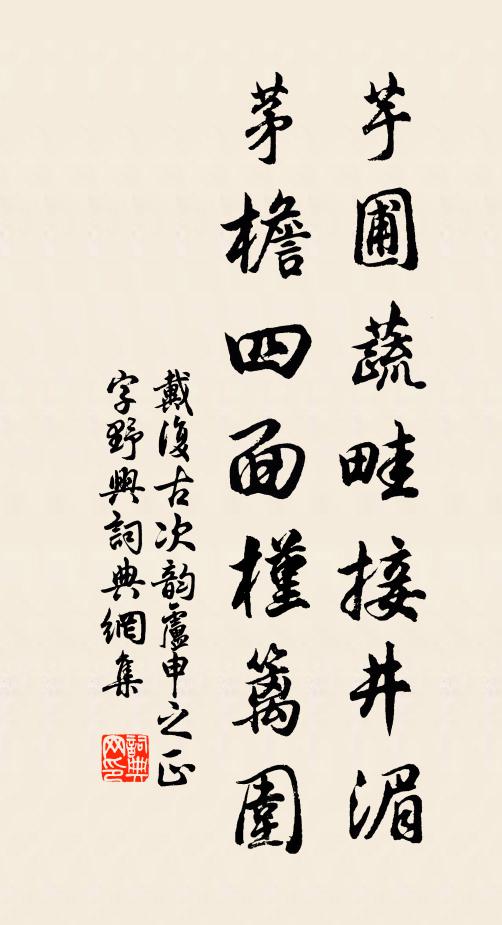 芋圃蔬畦接井湄
茅檐四面槿籬圍
戴復古次韵盧申之正
字野興詞典網集
詞典网印